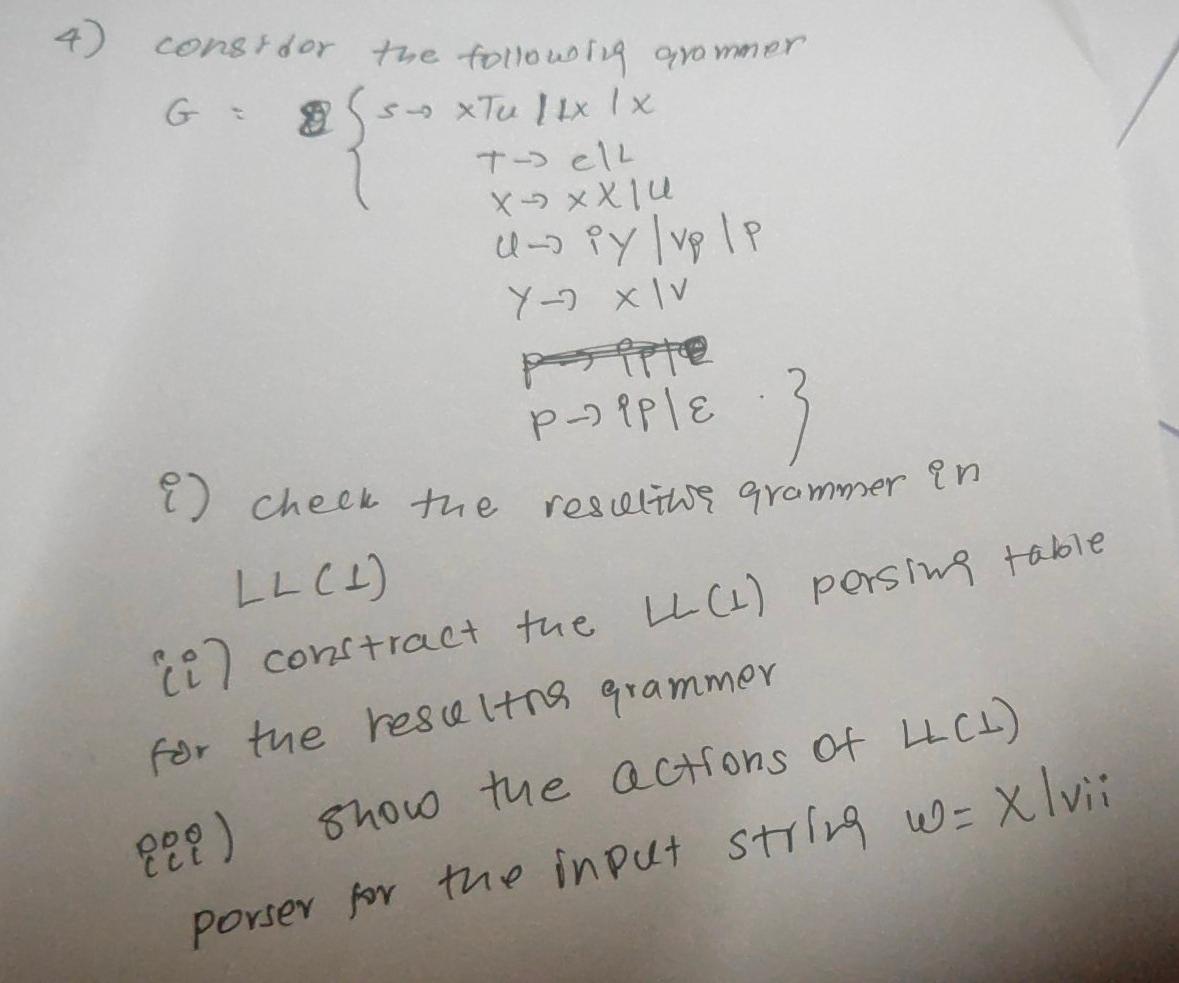 4) consider the following grammer
G : { S → xTu | Lx | x
T → c | L
X → xX | u
u → iY | vp | p
Y → x | v
p → ip | ε . }
i) check the resulting grammer in
LL(1)
ii) constract the LL(1) persing table
for the resulting grammer
iii) show the actions of LL(1)
porser for the input string w = x l v i i